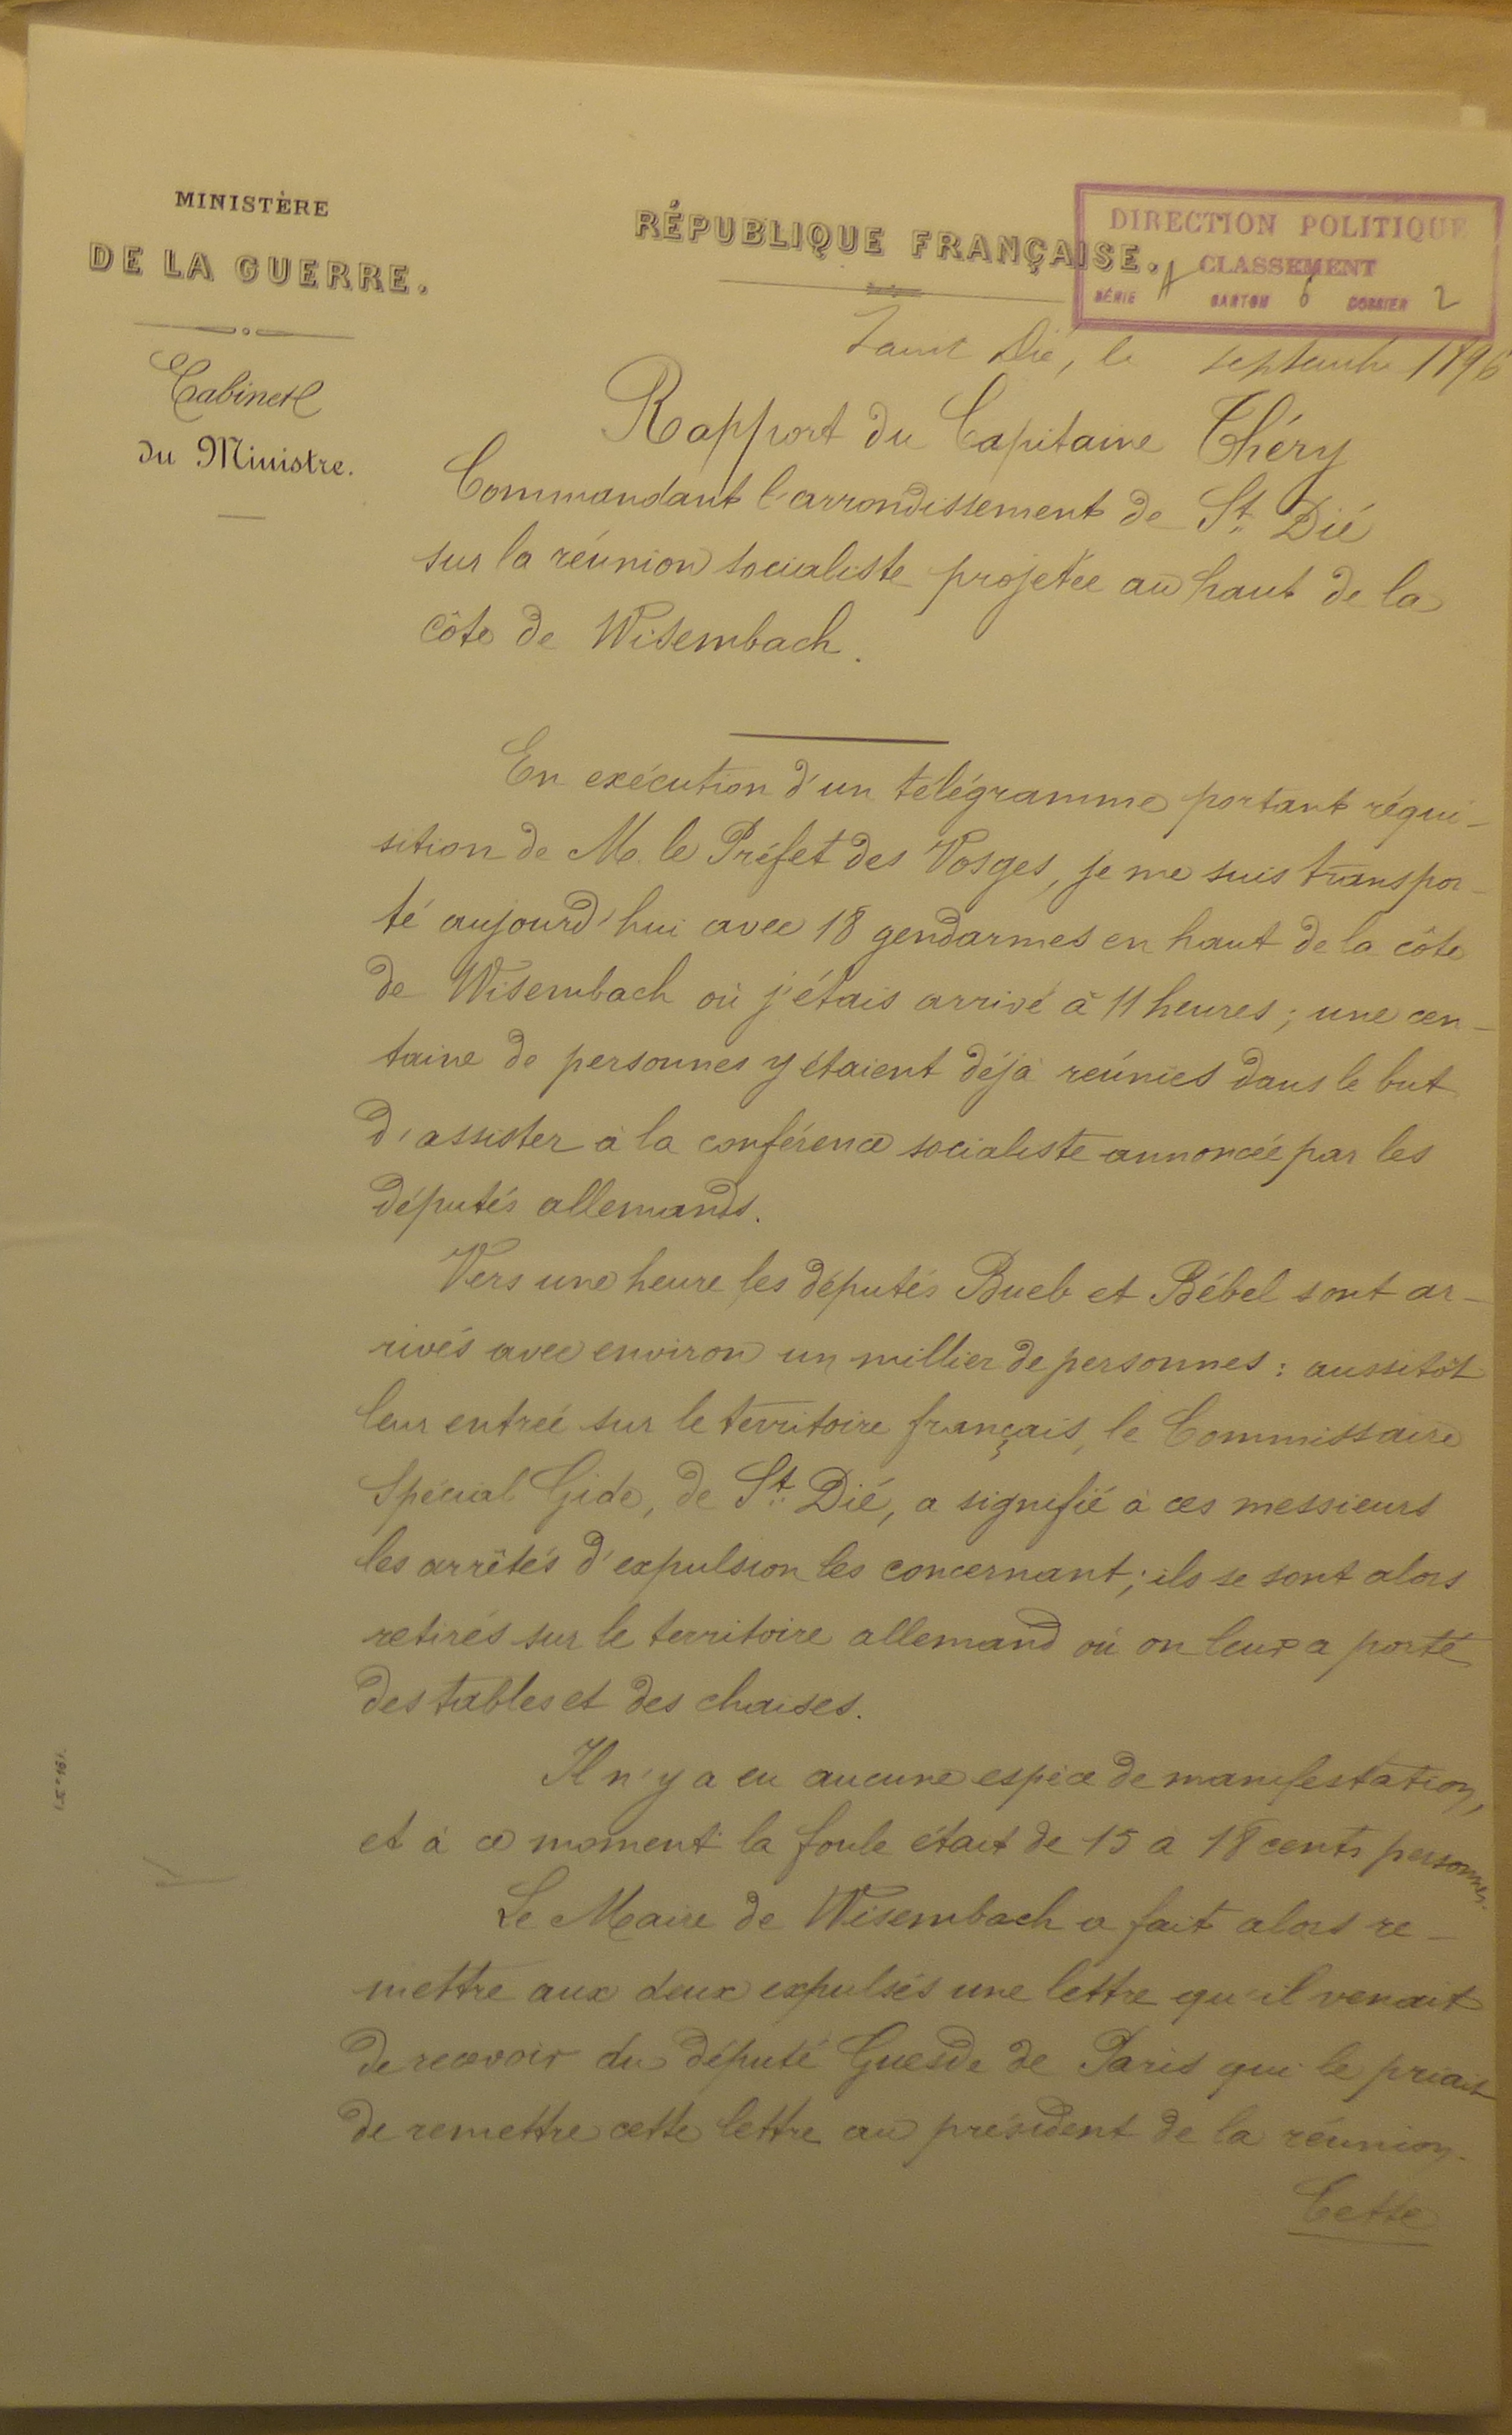 MINISTÈRE
DE LA GUERRE.
Cabinet
du Ministre.
RÉPUBLIQUE FRANÇAISE.
DIRECTION POLITIQUE
CLASSEMENT
SÉRIE A CARTON 6 DOSSIER 2
Saint Dié, le septembre 1896
Rapport du Capitaine Théry
Commandant l'arrondissement de St Dié
sur la réunion socialiste projetée au haut de la
côte de Wisembach.
En exécution d'un télégramme portant réqui-
sition de M. le Préfet des Vosges, je me suis transpor-
té aujourd'hui avec 18 gendarmes en haut de la côte
de Wisembach où j'étais arrivé à 11 heures; une cen-
taine de personnes y étaient déjà réunies dans le but
d'assister à la conférence socialiste annoncée par les
députés allemands.
Vers une heure les députés Bueb et Bébel sont ar-
rivés avec environ un millier de personnes: aussitôt
leur entrée sur le territoire français, le Commissaire
Spécial Gide, de St Dié, a signifié à ces messieurs
les arrêtés d'expulsion les concernant; ils se sont alors
retirés sur le territoire allemand où on leur a porté
des tables et des chaises.
Il n'y a eu aucune espèce de manifestation,
et à ce moment la foule était de 15 à 18 cents personnes.
Le Maire de Wisembach a fait alors re-
mettre aux deux expulsés une lettre qu'il venait
de recevoir du député Guesde de Paris qui le priait
de remettre cette lettre au président de la réunion.
Cette